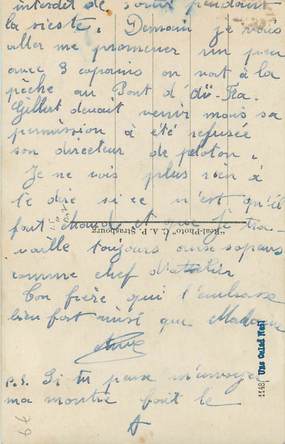 interdit de sortir pendant
la sieste. Demain je vais
aller me promener un peu
avec 3 copains on vart à la
pêche au Pont d
Gilbert devait venir mais sa
permission à été refusée
son directeur de peloton.
Je ne vois plus rien à
te dire si ce n'est qu'il
fait chaud et que je tra
vaille toujours sapeurs
comme chef d'atelier
Ton frère qui t'embrasse
bien fort ainsi que
P.S. Si tu peux m'envoyer
ma montre fait le
"Réal-Photo" C. A. P. Strasbourg
1148
79